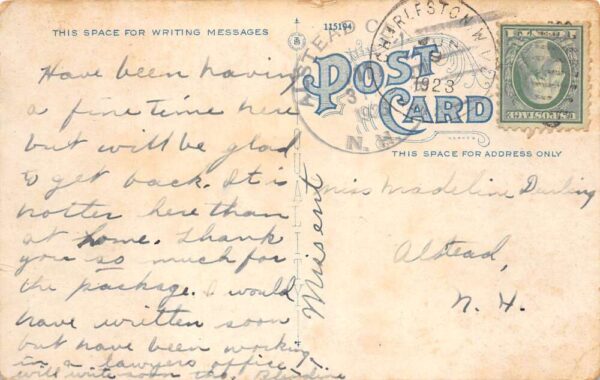 THIS SPACE FOR WRITING MESSAGES
115194
POST CARD
THIS SPACE FOR ADDRESS ONLY
CHARLESTON W.VA.
1923
ALSTEAD
N.H.
Have been having
a fine time here
but will be glad
to get back. It is
hotter here than
at home. Thank
you so much for
the package. I would
have written soon
but have been working
in a lawyers office
will write soon
Missent
Miss Madeline Darling
Alstead,
N. H.